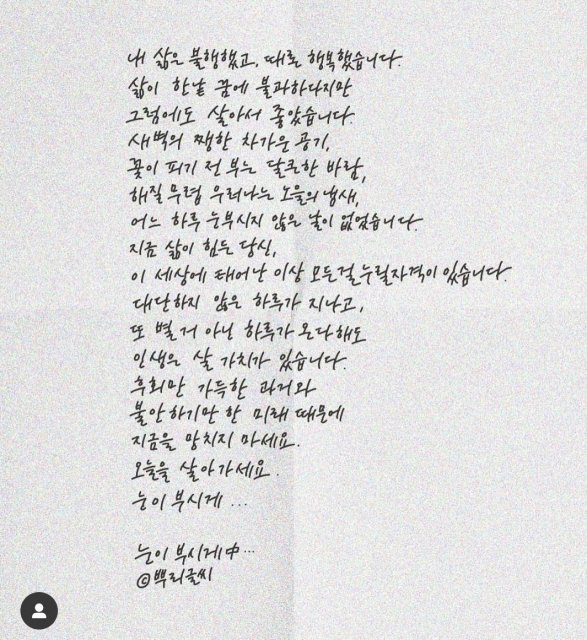 내 삶은 불행했고, 때로 행복했습니다.
삶이 한낱 꿈에 불과하다지만
그럼에도 살아서 좋았습니다.
새벽의 쨍한 차가운 공기,
꽃이 피기 전 부는 달큰한 바람,
해질 무렵 우러나는 노을의 냄새,
어느 하루 눈부시지 않은 날이 없었습니다.
지금 삶이 힘든 당신,
이 세상에 태어난 이상 모든걸 누릴자격이 있습니다.
대단하지 않은 하루가 지나고,
또 별 거 아닌 하루가 온다해도
인생은 살 가치가 있습니다.
후회만 가득한 과거와
불안하기만 한 미래 때문에
지금을 망치지 마세요.
오늘을 살아가세요.
눈이 부시게 ...
눈이 부시게 中...
©뿌리글씨